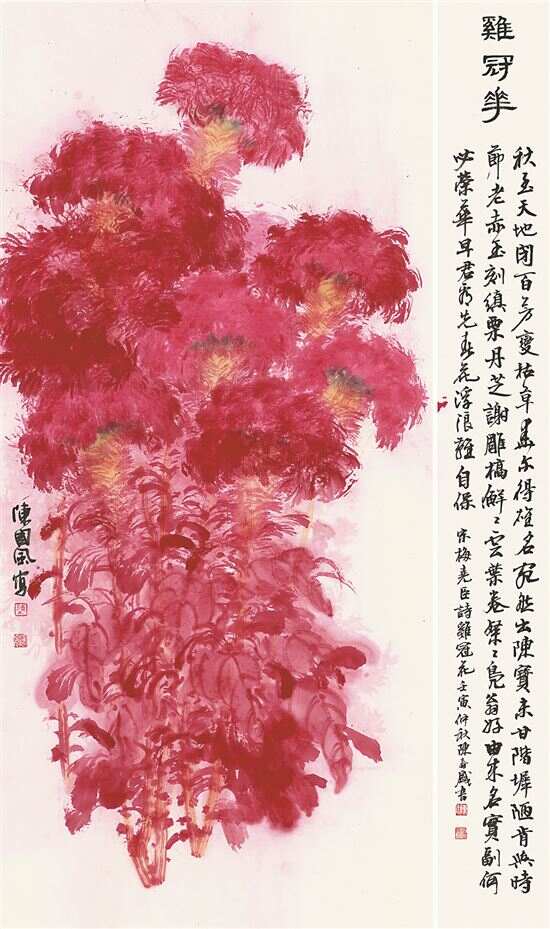 雞冠華
秋至天地閉百芳變枯草愛尔得雄名宛然出陳寶未甘階墀陋肯與時
節老赤玉刻縝栗丹芝謝雕槁鮮〻雲葉卷粲〻鳧翁好由来名實副何
必榮華早君看先春花浮浪難自保 宋梅堯臣詩雞冠花壬寅仲秋陳春盛書
陳國風寫